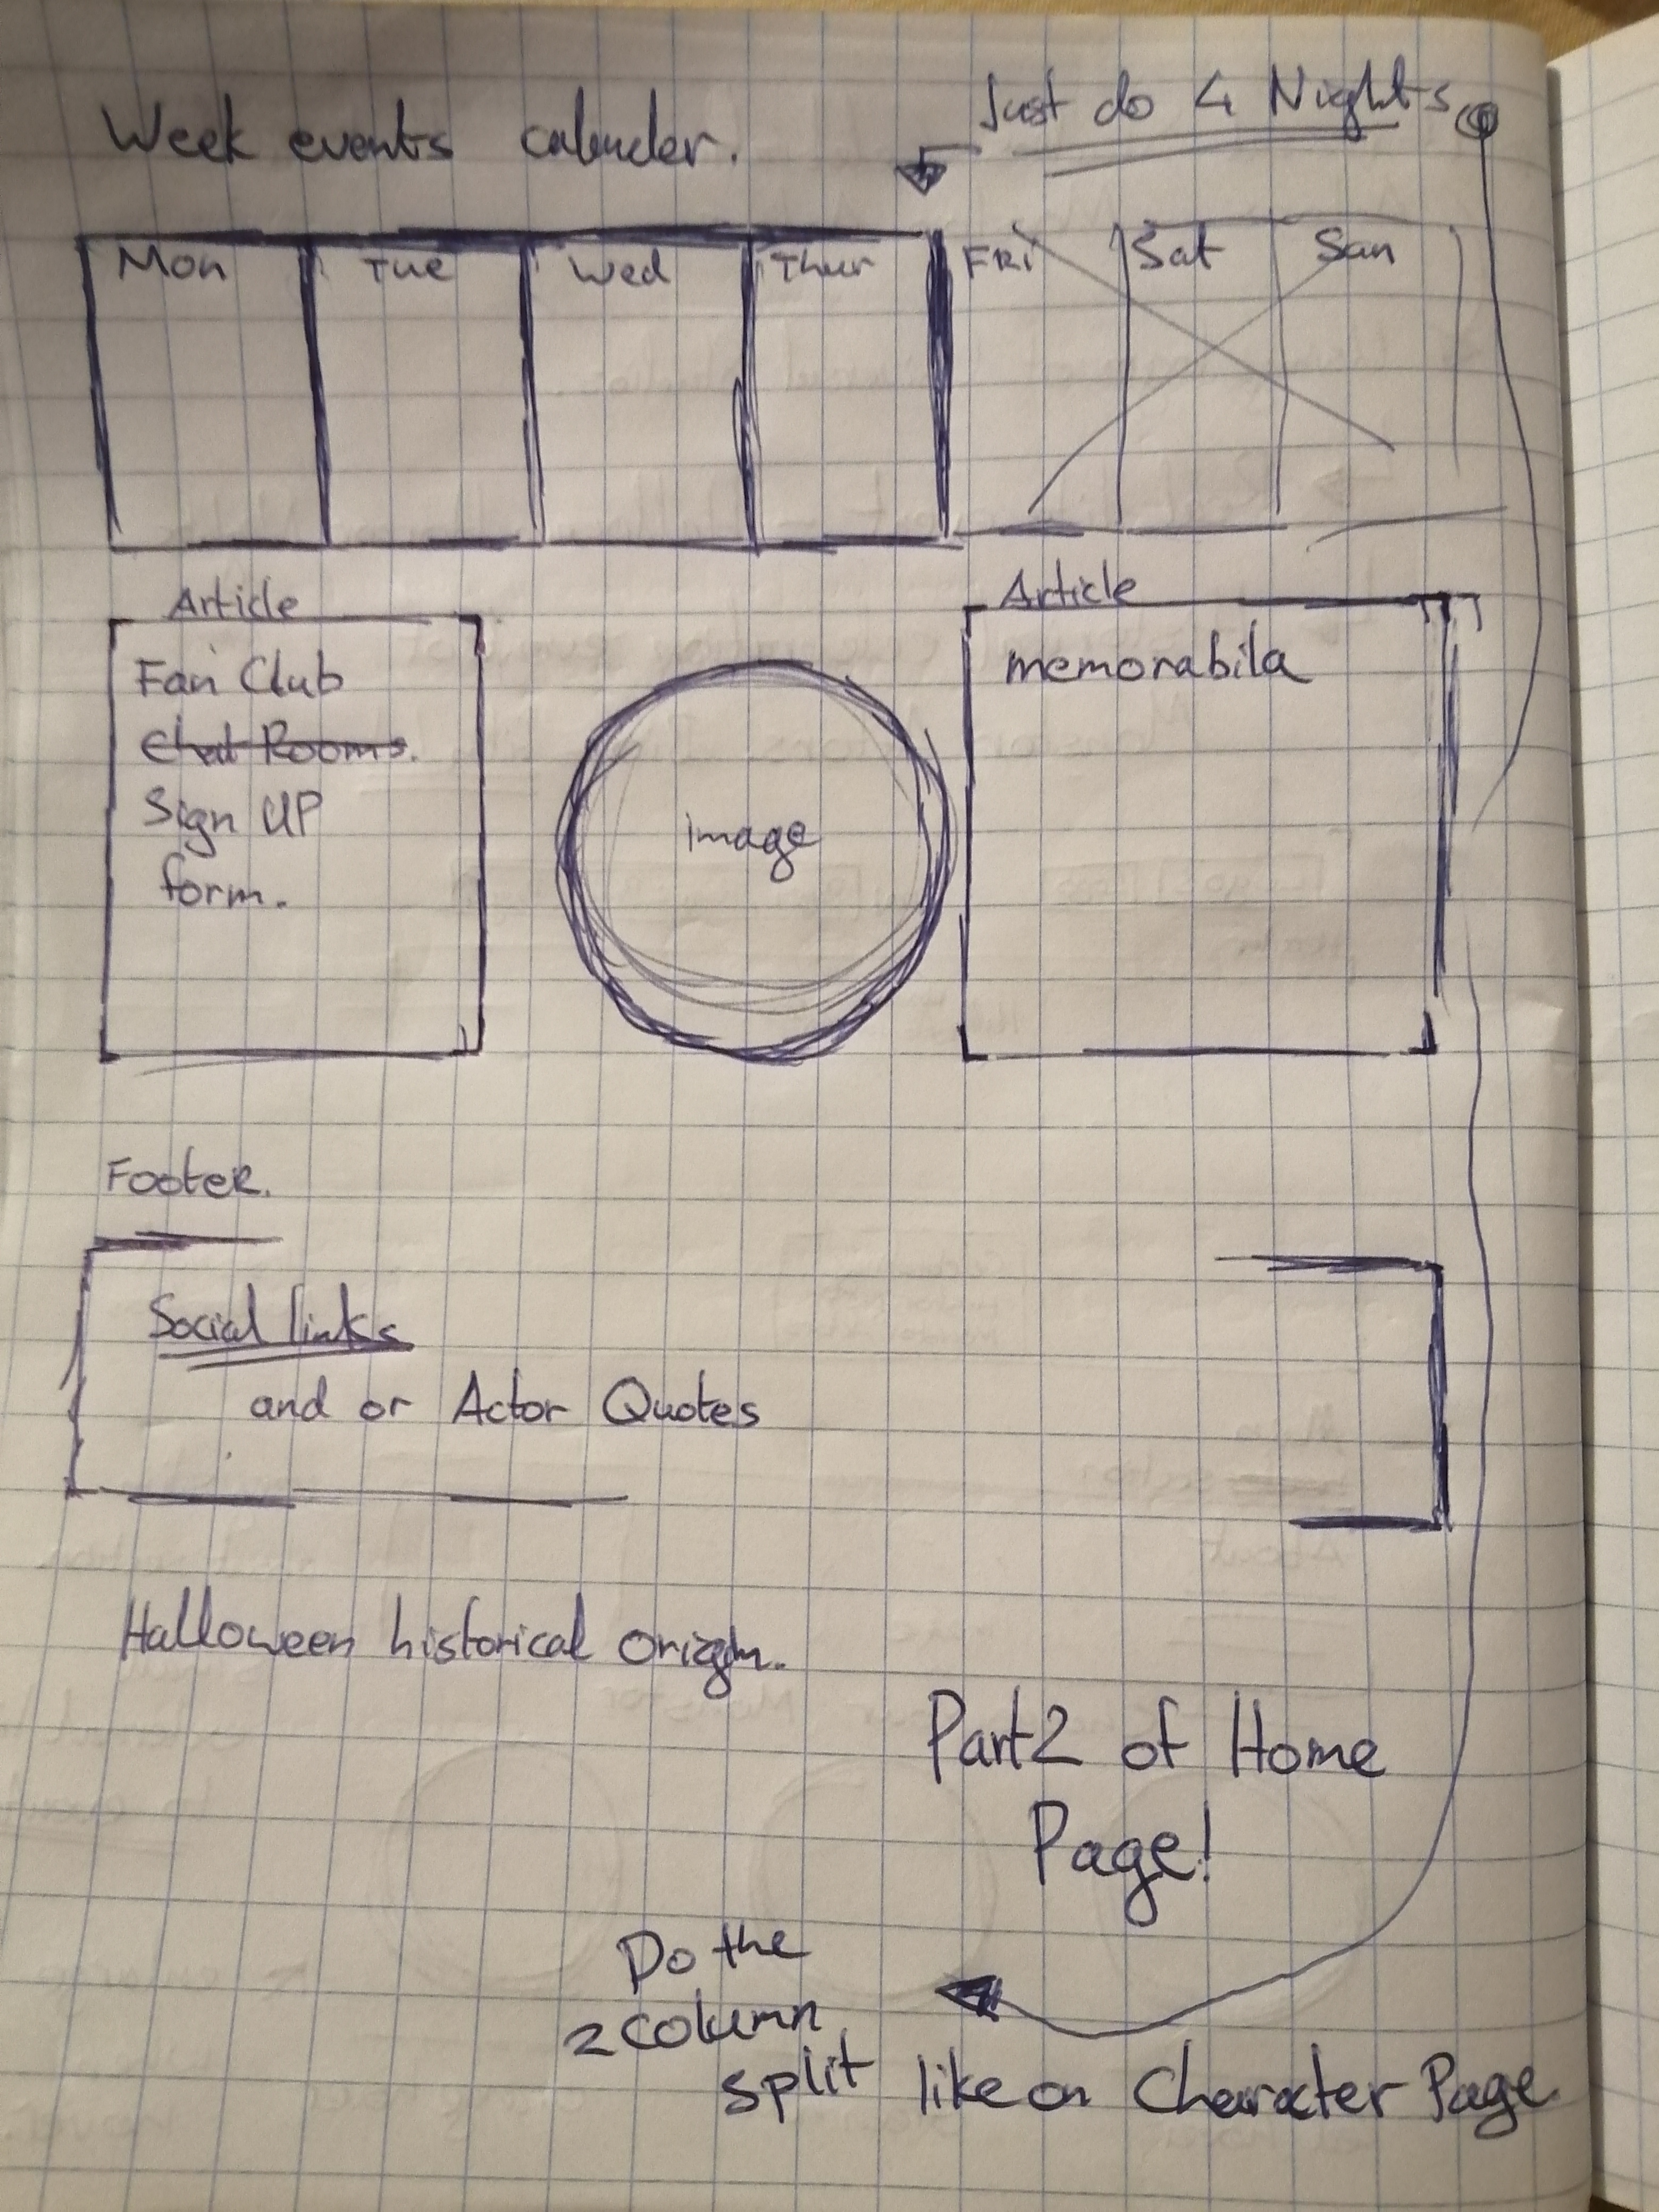 Just do 4 Nights
Week events calender.
Mon Tue Wed Thur FRI Sat Sun
Article
Fan Club
Chat Rooms.
Sign UP
form.
image
Article
memorabila
Footer.
Social links
and or Actor Quotes
Halloween historical origin.
Part 2 of Home
Page!
Do the
2 column
split like on Character Page.